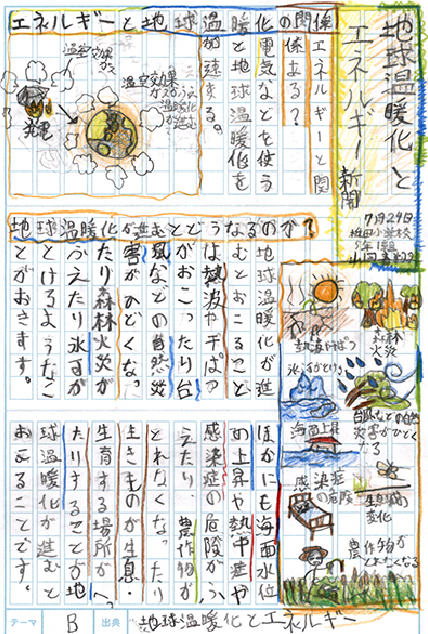 地球温暖化と
エネルギー新聞
7月29日
エネルギーと地球温暖化の関係
エネルギーと関
係ある?
電気などを使う
と地球温暖化を
加速する。
温室効果
ガス
発電
温室効果
地球温暖化が進むとどうなるのか?
地球温暖化が進
むとおこること
は熱波や干ばつ
がおこったり台
風などの自然災
害がひどくな
たり森林火災が
ふえたり氷河が
とけるようなこ
とがおきます。
森林
火災
熱波や干ばつ
氷河がとける
台風などの自然
災害がひどく
なる
海面上昇
感染症
の危険
生息域の
変化
農作物が
とれなくなる
ほかにも海面水位
の上昇や熱中症や
感染症の危険がふ
えたり、農作物が
とれなくなったり
生きものが生息・
生育する場所がへっ
たりすることが地
球温暖化が進むと
おこることです。
テーマ B 出典 地球温暖化とエネルギー